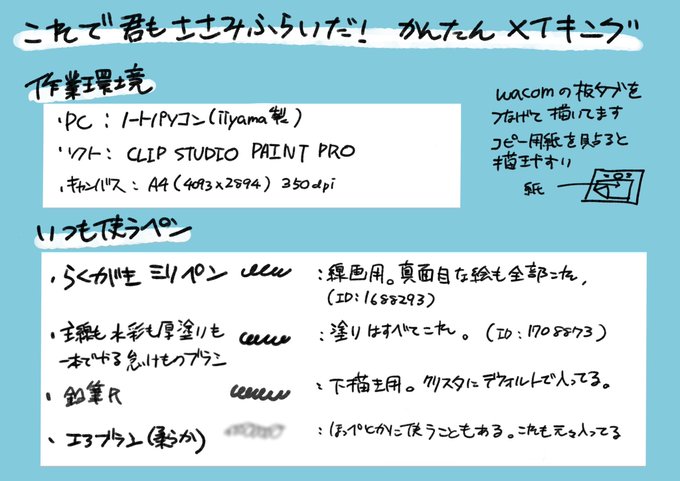 これで君もささみふらいだ! かんたんメイキング
作業環境
・PC : ノートパソコン(iiyama製)
・ソフト : CLIP STUDIO PAINT PRO
・キャンバス : A4(4093×2894) 350dpi
wacomの板タブを
つなげて描いてます
コピー用紙を貼ると
描きやすい
紙
いつも使うペン
・らくがきミリペン
:線画用。真面目な絵も全部これ。
(ID:1688293)
・主線も水彩も厚塗りも
一本でやる怠けものブラシ
:塗りはすべてこれ。(ID:1708873)
・鉛筆R
:下描き用。クリスタにデフォルトで入ってる。
・エアブラシ(柔らか)
:ほっぺとかに使うこともある。これも元々入ってる